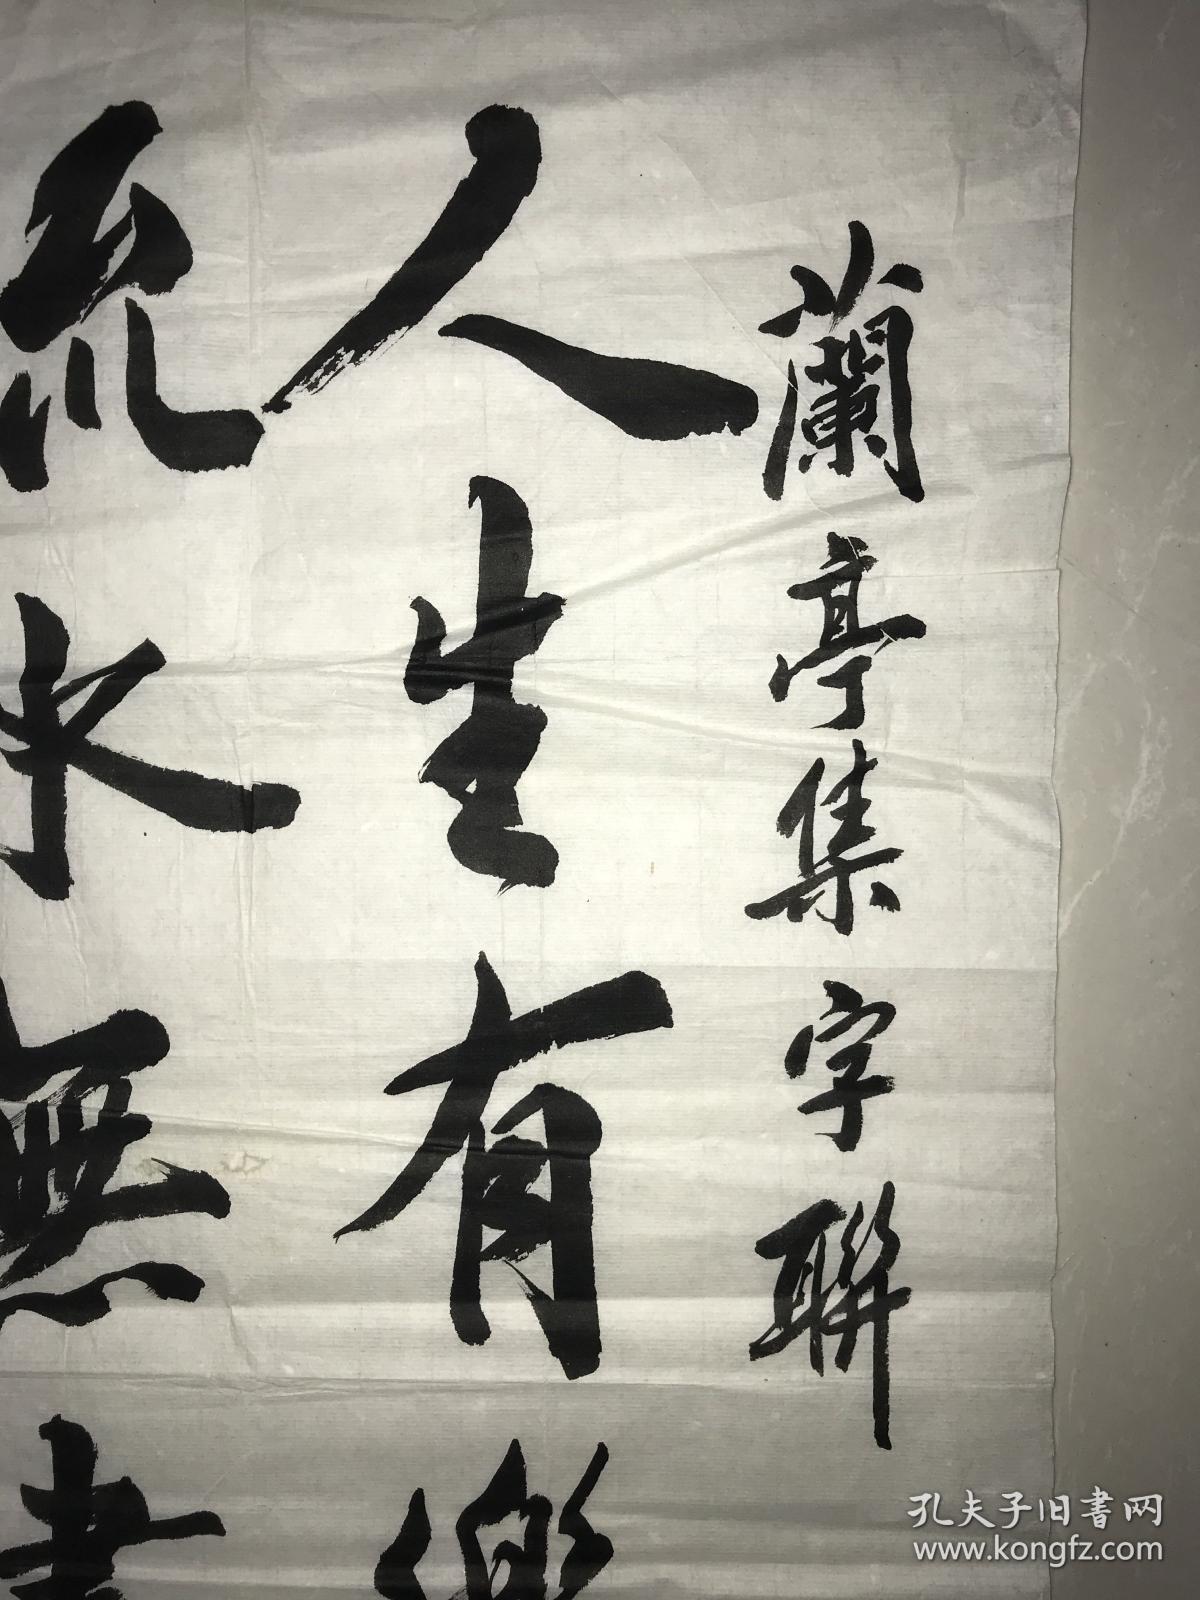 蘭亭集字聯
人生有樂
流水無盡
孔夫子旧书网
www.kongfz.com